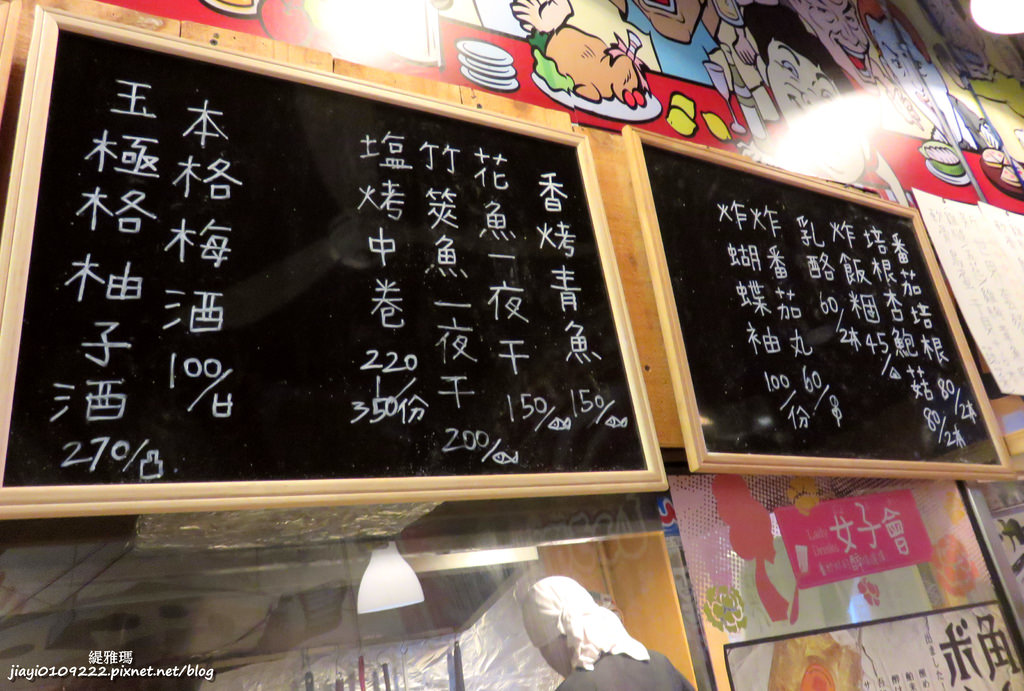 香烤青魚 150/
花魚一夜干 150/
竹筴魚一夜干 200/
塩烤中卷 220 350/份
本格梅酒 100/
玉極格柚子酒 270/
番茄培根 80/2本
培根杏鮑菇 80/2本
炸飯糰 45/
乳酪 60/2本
炸番茄丸 60/串
炸蝴蝶袖 100/份
Lady Drinks
女子會
緹雅瑪
jiayi0109222.pixnet.net/blog